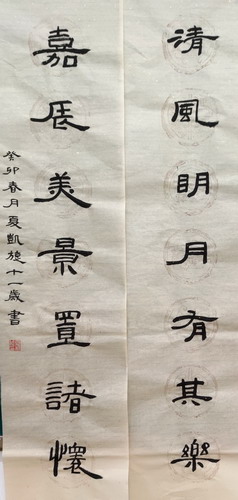 清風明月有其樂
嘉辰美景置諸懷
癸卯春月夏凱旋十一歲書